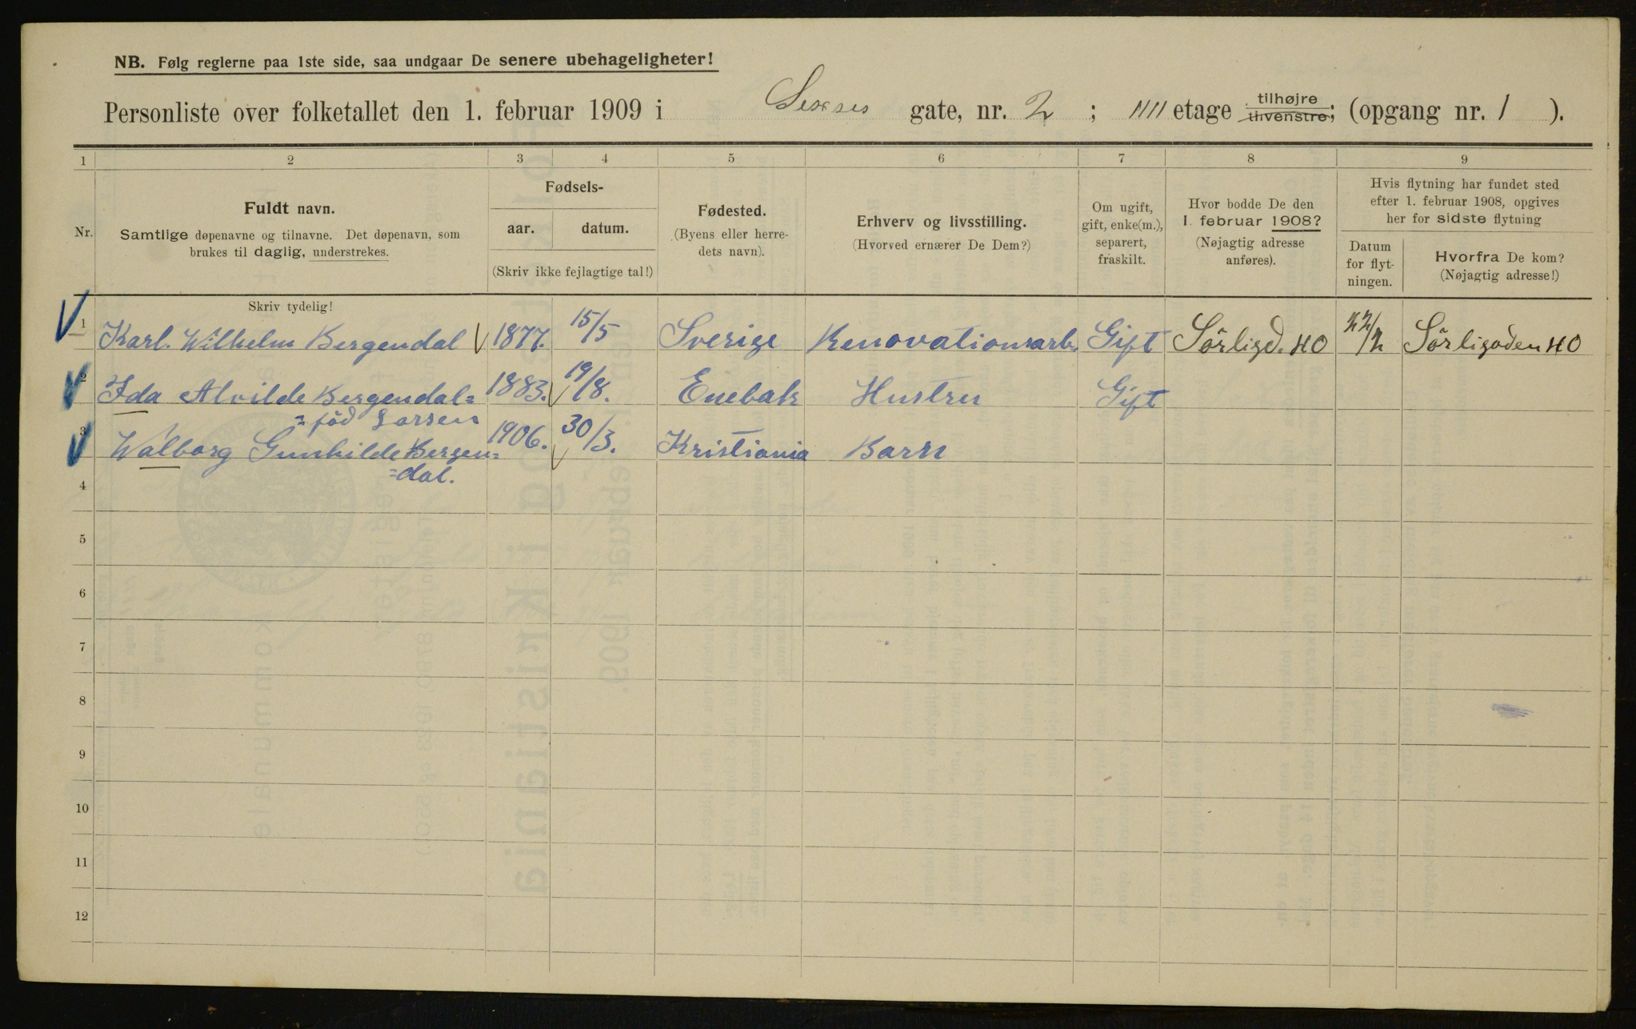 NB. Følg reglerne paa 1ste side, saa undgaar De senere ubehageligheter!
Personliste over folketallet den 1. februar 1909 i gate, nr. 2 ; IIII etage tilhøjre tilvenstre; (opgang nr. 1 ).
1 2 3 4 5 6 7 8 9
Nr.
Fuldt navn.
Samtlige døpenavne og tilnavne. Det døpenavn, som
brukes til daglig, understrekes.
Skriv tydelig!
Fødsels-
aar. datum.
(Skriv ikke fejlagtige tal!)
Fødested.
(Byens eller herre-
dets navn).
Erhverv og livsstilling.
(Hvorved ernærer De Dem?)
Om ugift,
gift, enke(m.),
separert,
fraskilt.
Hvor bodde De den
1. februar 1908?
(Nøjagtig adresse
anføres).
Hvis flytning har fundet sted
efter 1. februar 1908, opgives
her for sidste flytning
Datum
for flyt-
ningen.
Hvorfra De kom?
(Nøjagtig adresse!)
1 Karl Wilhelm Bergendal 1877. 15/5 Sverige Renovationsarb. Gift Sørligd. 40 Sørligaden 40
2 Ida Alvilde Bergendal= 1883. 19/8. Enebak Hustru Gift
= fød Larsen
3 Walborg Gunhilde Bergen= 1906. 30/3. Kristiania Barn
=dal.
4
5
6
7
8
9
10
11
12